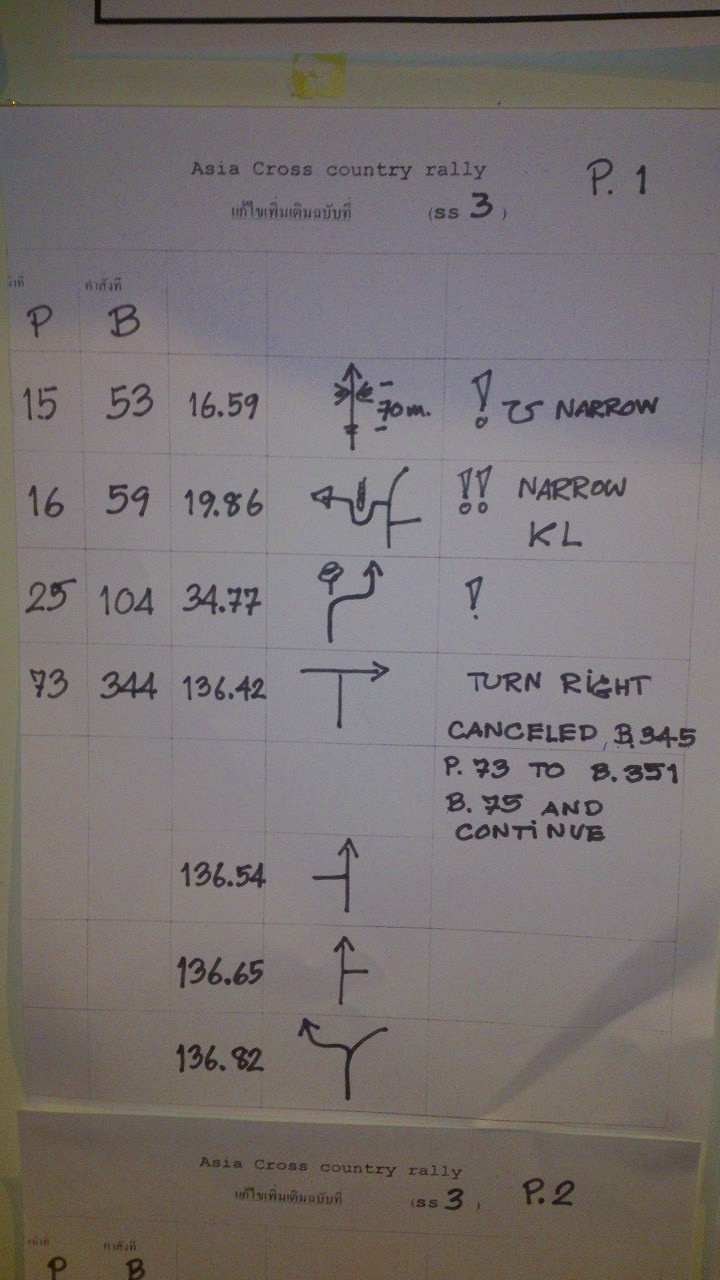 Asia Cross country rally
P. 1
แก้ไขเพิ่มเติมฉบับที่ (ss 3 )
คำสั่งที่
P B
15 53 16.59 70m. ! NARROW
16 59 19.86 !! NARROW
KL
25 104 34.77 !
73 344 136.42 TURN RIGHT
CANCELED, B.345
P. 73 TO B. 351
B. 75 AND
CONTINUE
136.54
136.65
136.82
Asia Cross country rally
แก้ไขเพิ่มเติมฉบับที่ (ss 3 ) P.2
คำสั่งที่
P B